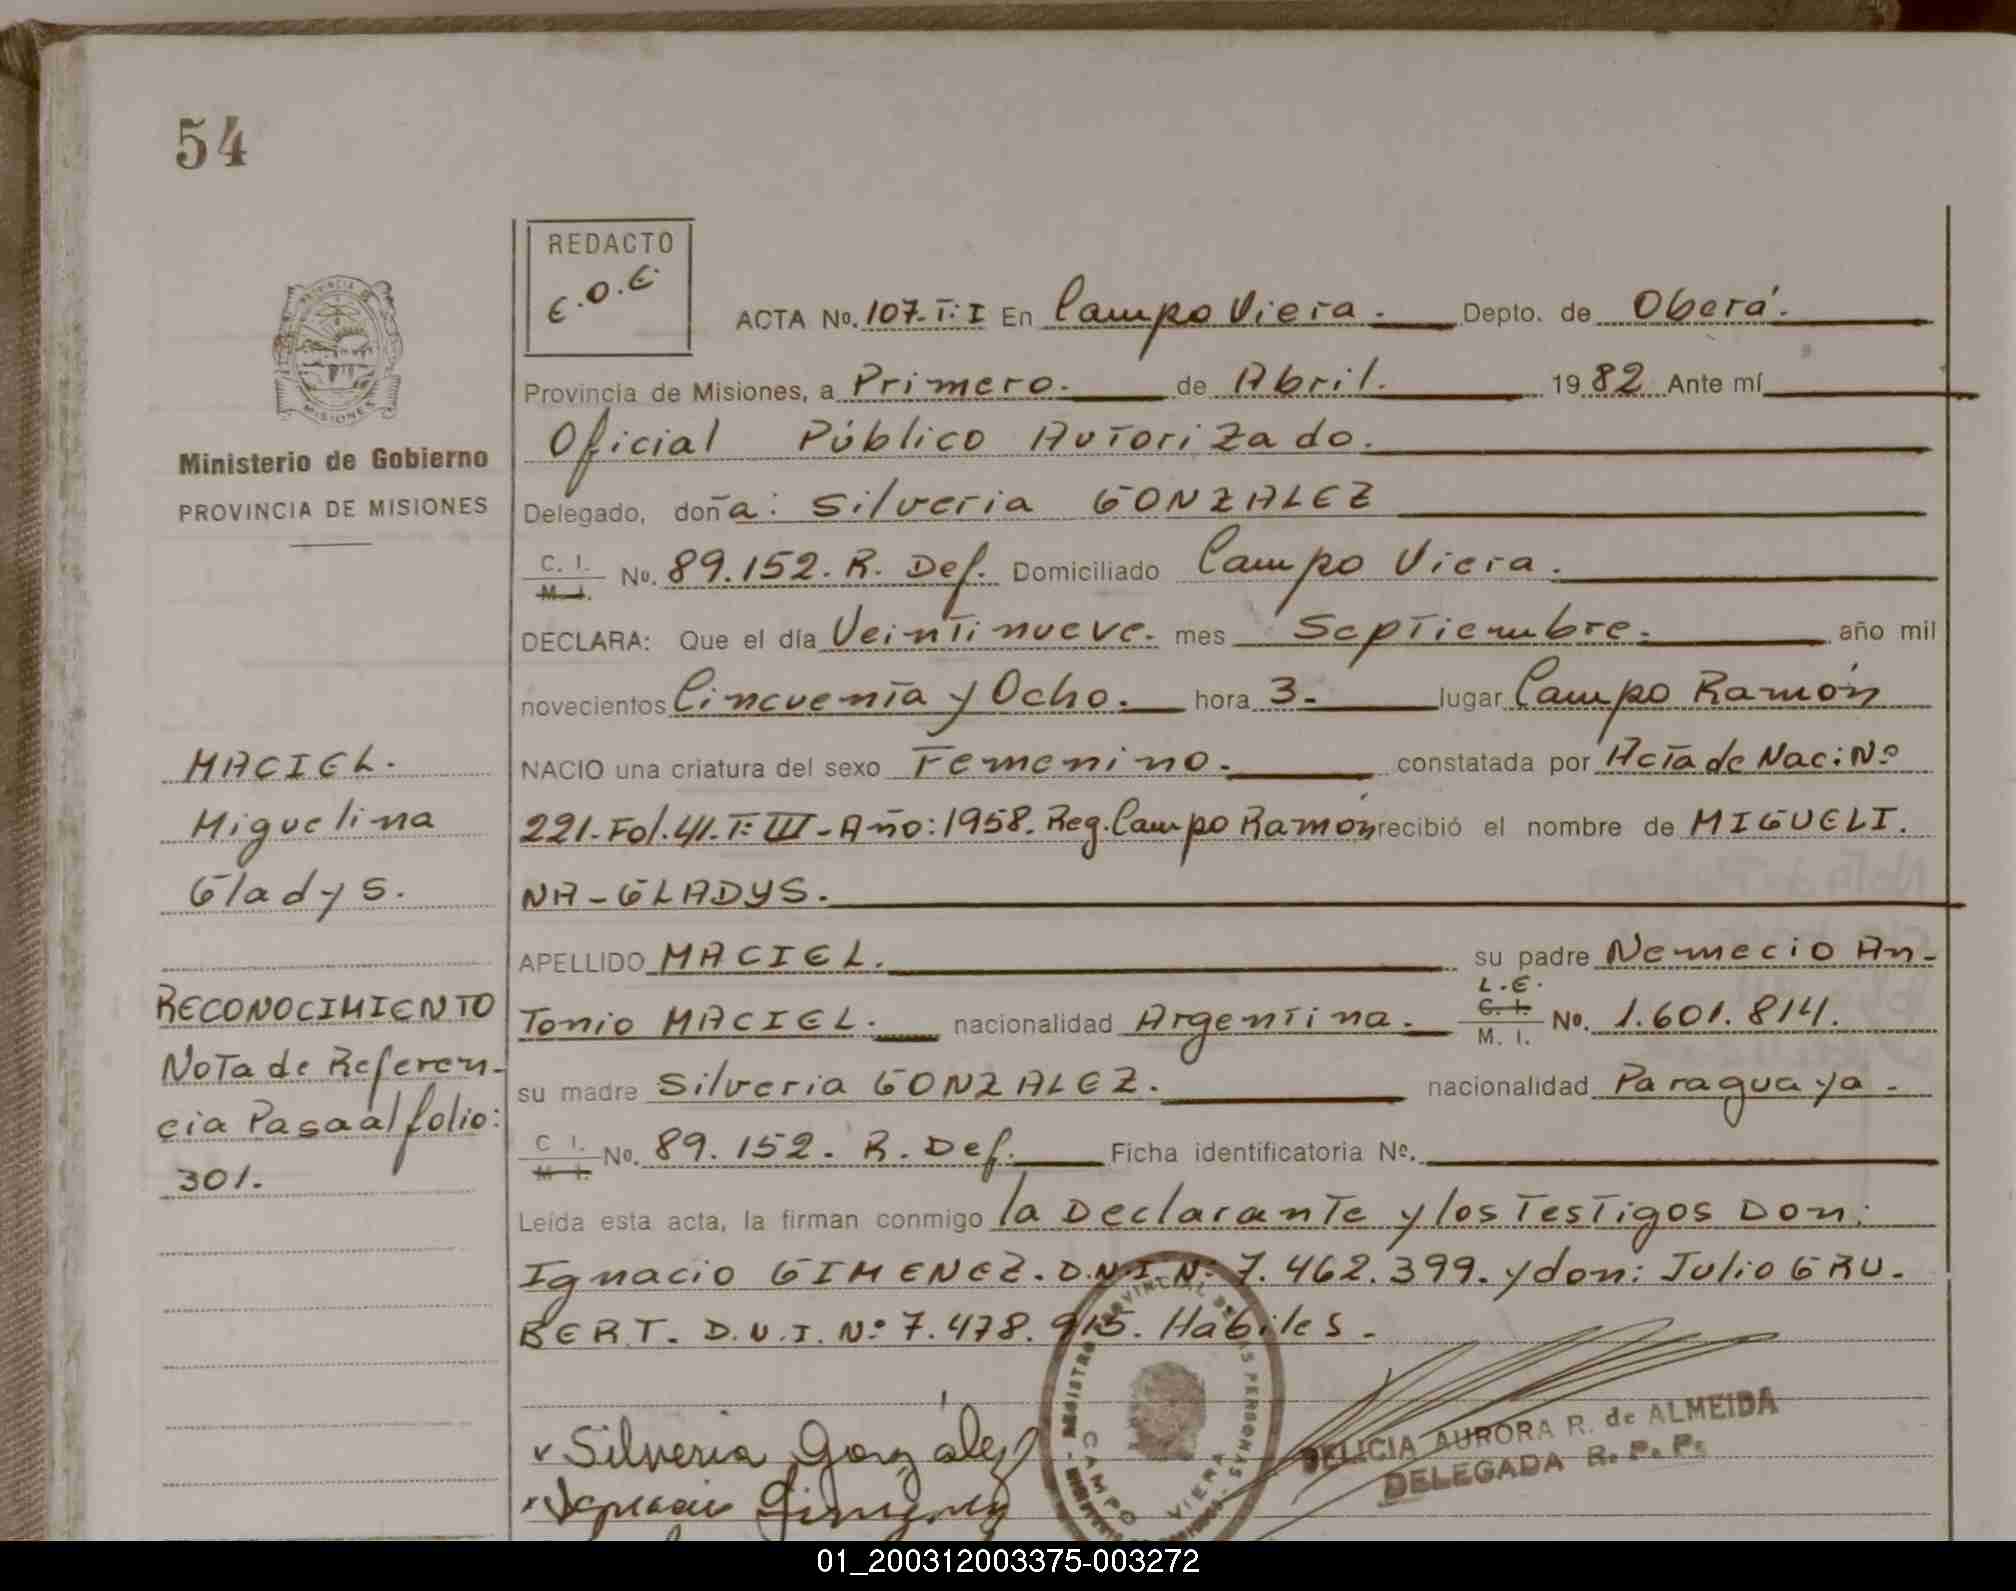 54
REDACTO
E.O.E.
PROVINCIA DE
MISIONES
Ministerio de Gobierno
PROVINCIA DE MISIONES
ACTA No. 107-T: I En Campo Viera. Depto. de Oberá.
Provincia de Misiones, a Primero. de Abril. 1982 Ante mí
Oficial Público Autorizado.
Delegado, doña: Silveria GONZALEZ
C. I.
M. I.
No. 89.152. R. Def. Domiciliado Campo Viera.
DECLARA: Que el día Veintinueve. mes Septiembre. año mil
novecientos Cincuenta y Ocho. hora 3. lugar Campo Ramón
NACIO una criatura del sexo Femenino. constatada por Acta de Nac: Nº
221. Fol. 41. T: III - Año: 1958. Reg. Campo Ramón recibió el nombre de MIGUELI.
NA - GLADYS.
APELLIDO MACIEL. su padre Nemecio An-
tonio MACIEL. nacionalidad Argentina. L.E. C. I. M. I. No. 1.601.814.
su madre Silveria GONZALEZ. nacionalidad Paraguaya.
C I.
M I.
No. 89.152. R. Def. Ficha identificatoria No.
Leída esta acta, la firman conmigo la Declarante y los Testigos Don:
Ignacio GIMENEZ. D.N.I. Nº 7.462.399. y don: Julio GRU.
BERT. D.N.I. Nº 7.478.915. Hábiles.
MACIEL.
Miguelina
Gladys.
RECONOCIMIENTO
Nota de Referen-
cia Pasa al folio:
301.
Silveria González
Gimenez
PROVINCIAL DE LAS PERSONAS
CAMPO VIERA
DELICIA AURORA R. de ALMEIDA
DELEGADA R. P. P.
01_200312003375-003272